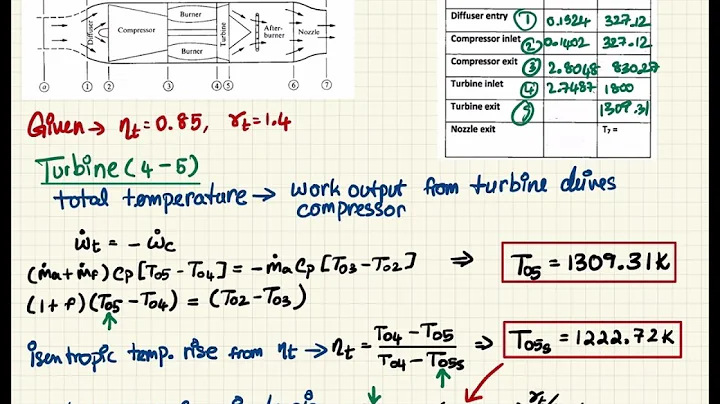 Diffuser
Compressor
Burner
Burner
Turbine
After-
burner
Nozzle
a 1 2 3 4 5 6 7
Diffuser entry 1 0.1524 327.12
Compressor inlet 2 0.1402 327.12
Compressor exit 3 2.8048 830.27
Turbine inlet 4 2.7487 1800
Turbine exit 5 1309.31
Nozzle exit T₇ =
Given → ηt = 0.85, γt = 1.4
Turbine (4-5)
total temperature → work output from turbine drives
compressor
ẇt = - ẇc
(ṁa + ṁf) Cp [T05 - T04] = - ṁa Cp [T03 - T02] ⇒ T05 = 1309.31 K
(1 + f) (T05 - T04) = (T02 - T03)
isentropic temp. rise from ηt → ηt = (T04 - T05) / (T04 - T05s) ⇒ T05s = 1222.72 K